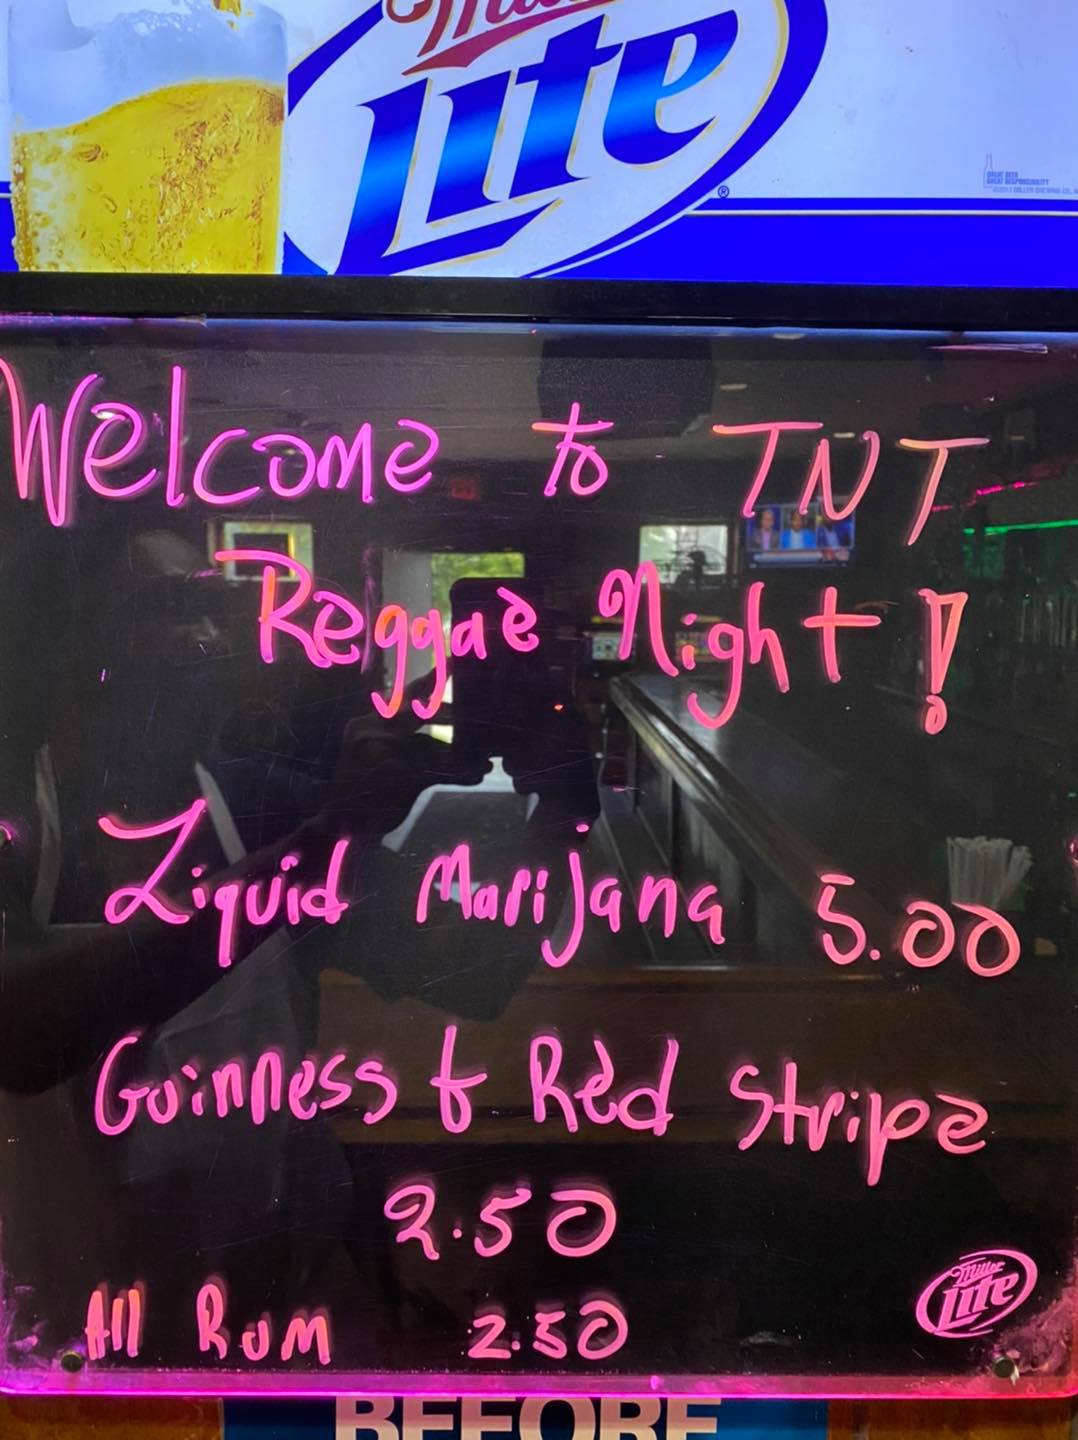 Miller
Lite
®
GREAT BEER
GREAT RESPONSIBILITY
Welcome to TNT
Reggae Night!
Liquid Marijana 5.00
Guinness & Red Stripe
2.50
All Rum 2.50
Miller
Lite
BEFORE